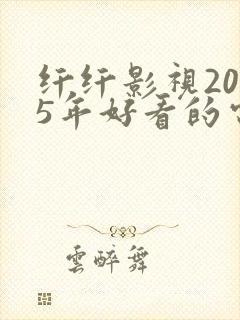 纤纤影視20
5年好看的
雲醉舞